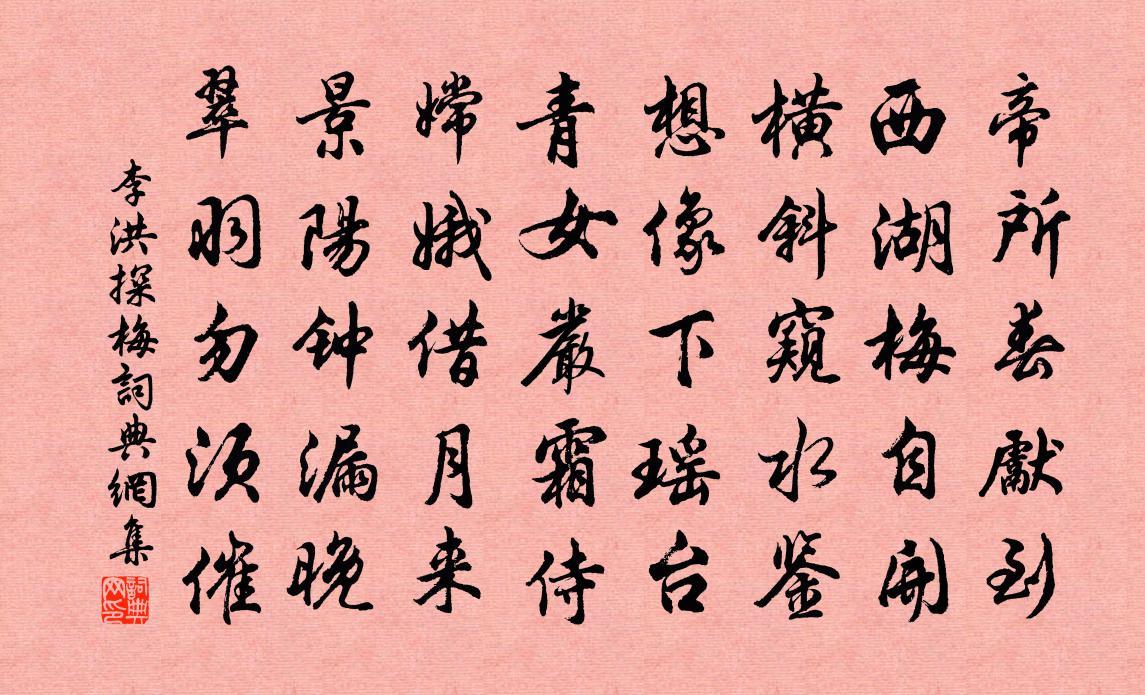 帝所春獻到
西湖梅自開
橫斜窺水鉴
想像下瑶台
青女嚴霜侍
嫦娥借月来
景陽钟漏晚
翠羽勿須催
李洪探梅詞典網集
詞典網印